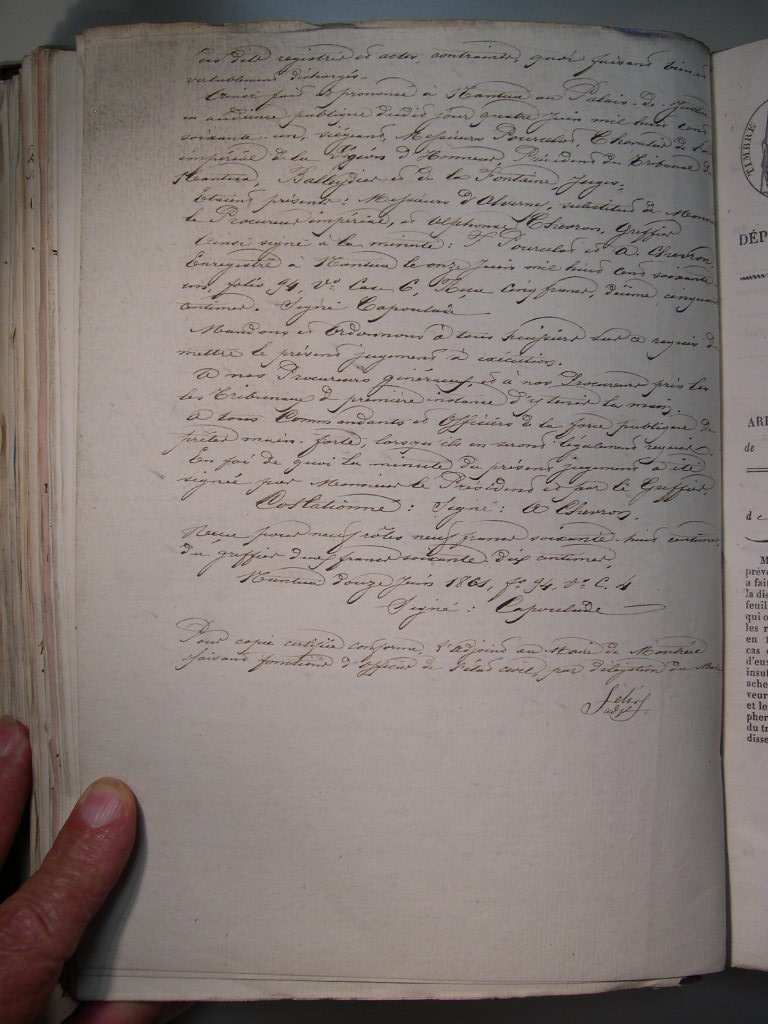 ces dits registres et actes, contraints, quoi faisant bien et
valablement déchargés.
Ainsi fait et prononcé à Nantua au Palais de Justice
en audience publique dudit jour quatre Juin mil huit cent
soixante un, siégeant, Messieurs Chevalier de
impérial de la Légion d'Honneur, Président du Tribunal de
Nantua, Balleydier et de la Fontaine, Juges,
Etaient présents: Messieurs d'Alverny, substitut de Monsieur
le Procureur impérial, et Alphonse Chevron, Greffier
Ainsi signé à la minute: et A. Chevron
Enregistré à Nantua le onze Juin mil huit cent soixante
un, folio 94, Vo. Case 6, Reçu cinq francs, décime cinquante
centimes. Signé Capoulade
Mandons et Ordonnons à tous huissiers sur ce requis de
mettre le présent jugement à exécution.
A nos Procureurs généraux, et à nos Procureurs près les
les Tribunaux de première instance d'y tenir la main.
A tous Commandants et Officiers de la force publique de
prêter main-forte, lorsqu'ils en seront légalement requis.
En foi de quoi la minute du présent jugement a été
signée par Monsieur le Président et par le Greffier.
Collationné: Signé: A Chevron.
Reçu pour neuf rôles neuf francs soixante huit centimes,
du greffier deux francs soixante-dix centimes,
Nantua douze Juin 1861, fo. 94, Vo. C. 4
Signé: Capoulade
Pour copie certifiée conforme, l'adjoint au Maire de Montréal
faisant fonctions d'officier de l'état civil, par délégation du Maire
TIMBRE
DÉP
AR
de
M
prév
a fait
la dis
feuil
qui o
les r
en 1
cas
d'en
insuf
ache
veur
et le
pher
du tr
disse